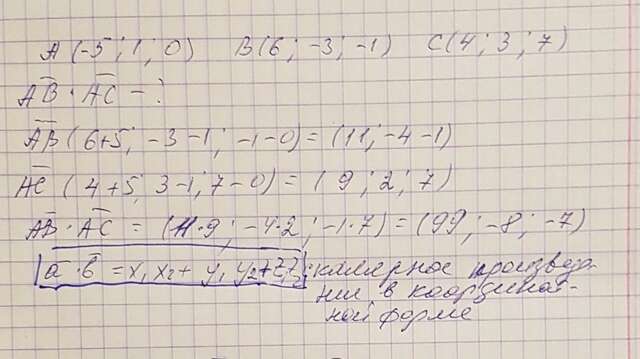 A (-5; 1; 0) B(6; -3; -1) C(4; 3; 7)
AB · AC - ?
AB (6+5; -3-1; -1-0) = (11; -4 -1)
AC (4+5; 3-1; 7-0) = (9; 2; 7)
AB · AC = (11·9; -4·2; -1·7) = (99; -8; -7)
a · b = x₁x₂ + y₁y₂ + z₁z₂ скалярное произведе-
ние в координат-
ной форме